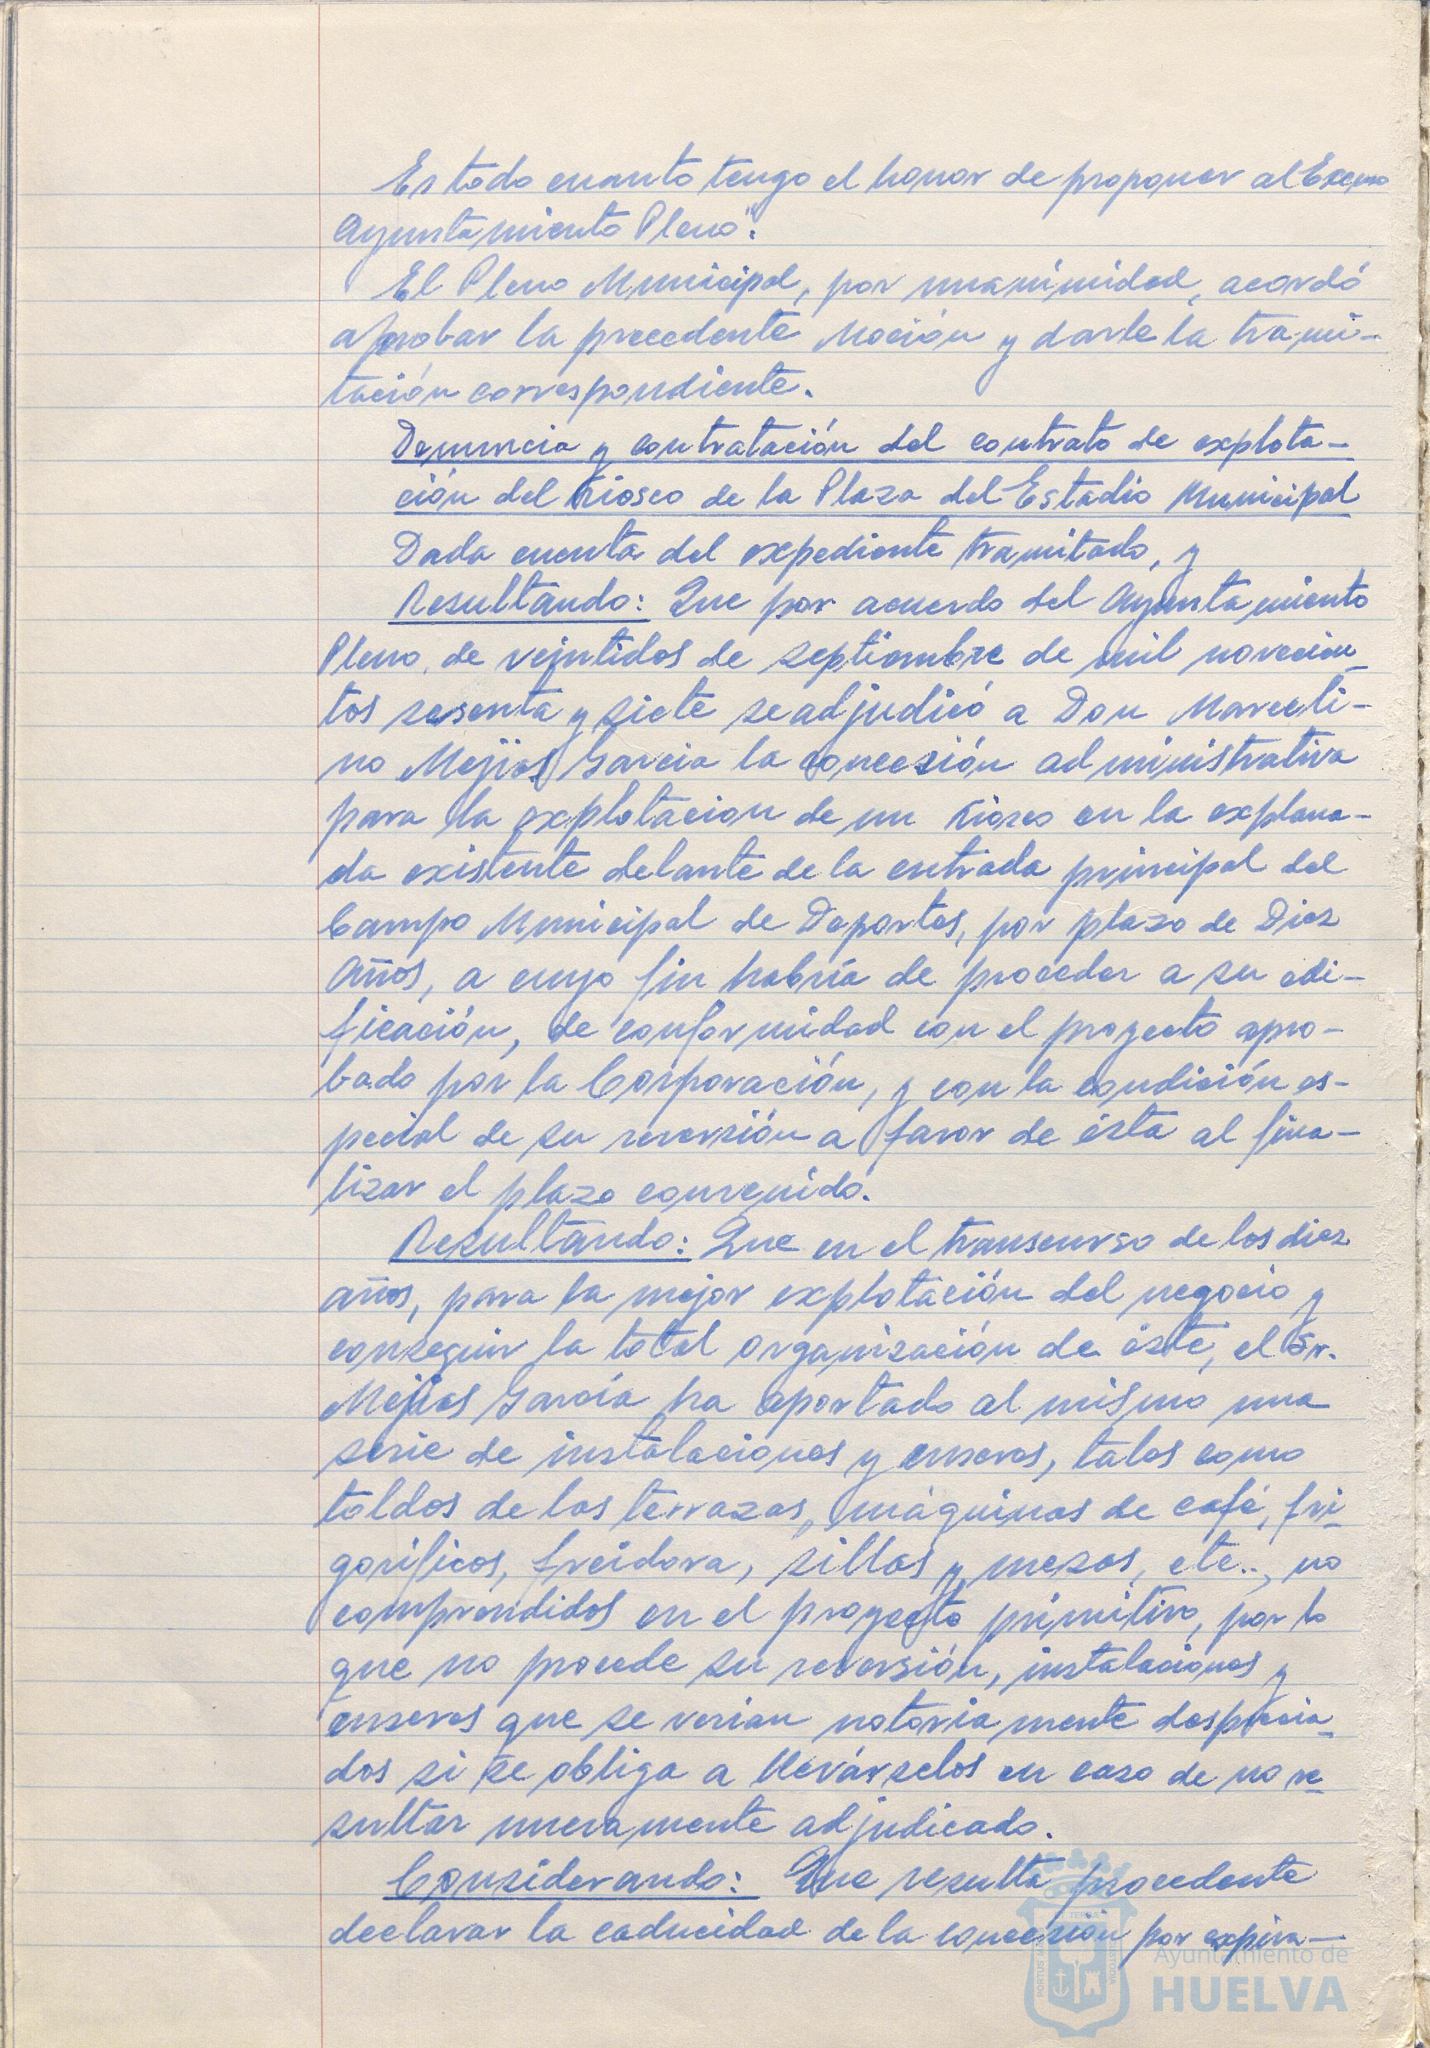 Es todo cuanto tengo el honor de proponer al Excmo
Ayuntamiento Pleno".
El Pleno Municipal, por unanimidad, acordó
aprobar la precedente Moción y darle la trami-
tación correspondiente.
Denuncia y contratación del contrato de explota-
ción del Kiosco de la Plaza del Estadio Municipal
Dada cuenta del expediente tramitado, y
Resultando: Que por acuerdo del Ayuntamiento
Pleno, de veintidos de septiembre de mil novecien-
tos sesenta y siete se adjudicó a Don Marceli-
no Mejias Garcia la concesión administrativa
para la explotacion de un Kiosco en la explana-
da existente delante de la entrada principal del
Campo Municipal de Deportes, por plazo de Diez
Años, a cuyo fin habría de proceder a su edi-
ficación, de conformidad con el proyecto apro-
bado por la Corporación, y con la condición es-
pecial de su reversión a favor de ésta al fina-
lizar el plazo convenido.
Resultando: Que en el transcurso de los diez
años, para la mejor explotación del negocio y
conseguir la total organización de éste, el Sr.
Mejias García ha aportado al mismo una
serie de instalaciones y enseres, tales como
toldos de las terrazas, máquinas de café, fri-
goríficos, freidora, sillas y mesas, etc.., no
comprendidos en el proyecto primitivo, por lo
que no procede su reversión, instalaciones y
enseres que se verian notoriamente desprecia-
dos si se obliga a llevárselos en caso de no re-
sultar nuevamente adjudicado.
Considerando: Que resulta procedente
declarar la caducidad de la concesión por expira-
Ayuntamiento de
HUELVA